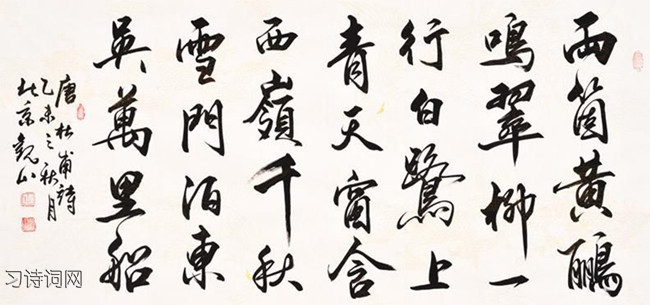 兩箇黃鸝
鳴翠柳一
行白鷺上
青天窗含
西嶺千秋
雪門泊東
吳萬里船
唐杜甫詩
乙未之秋月
北京觀山
习诗词网